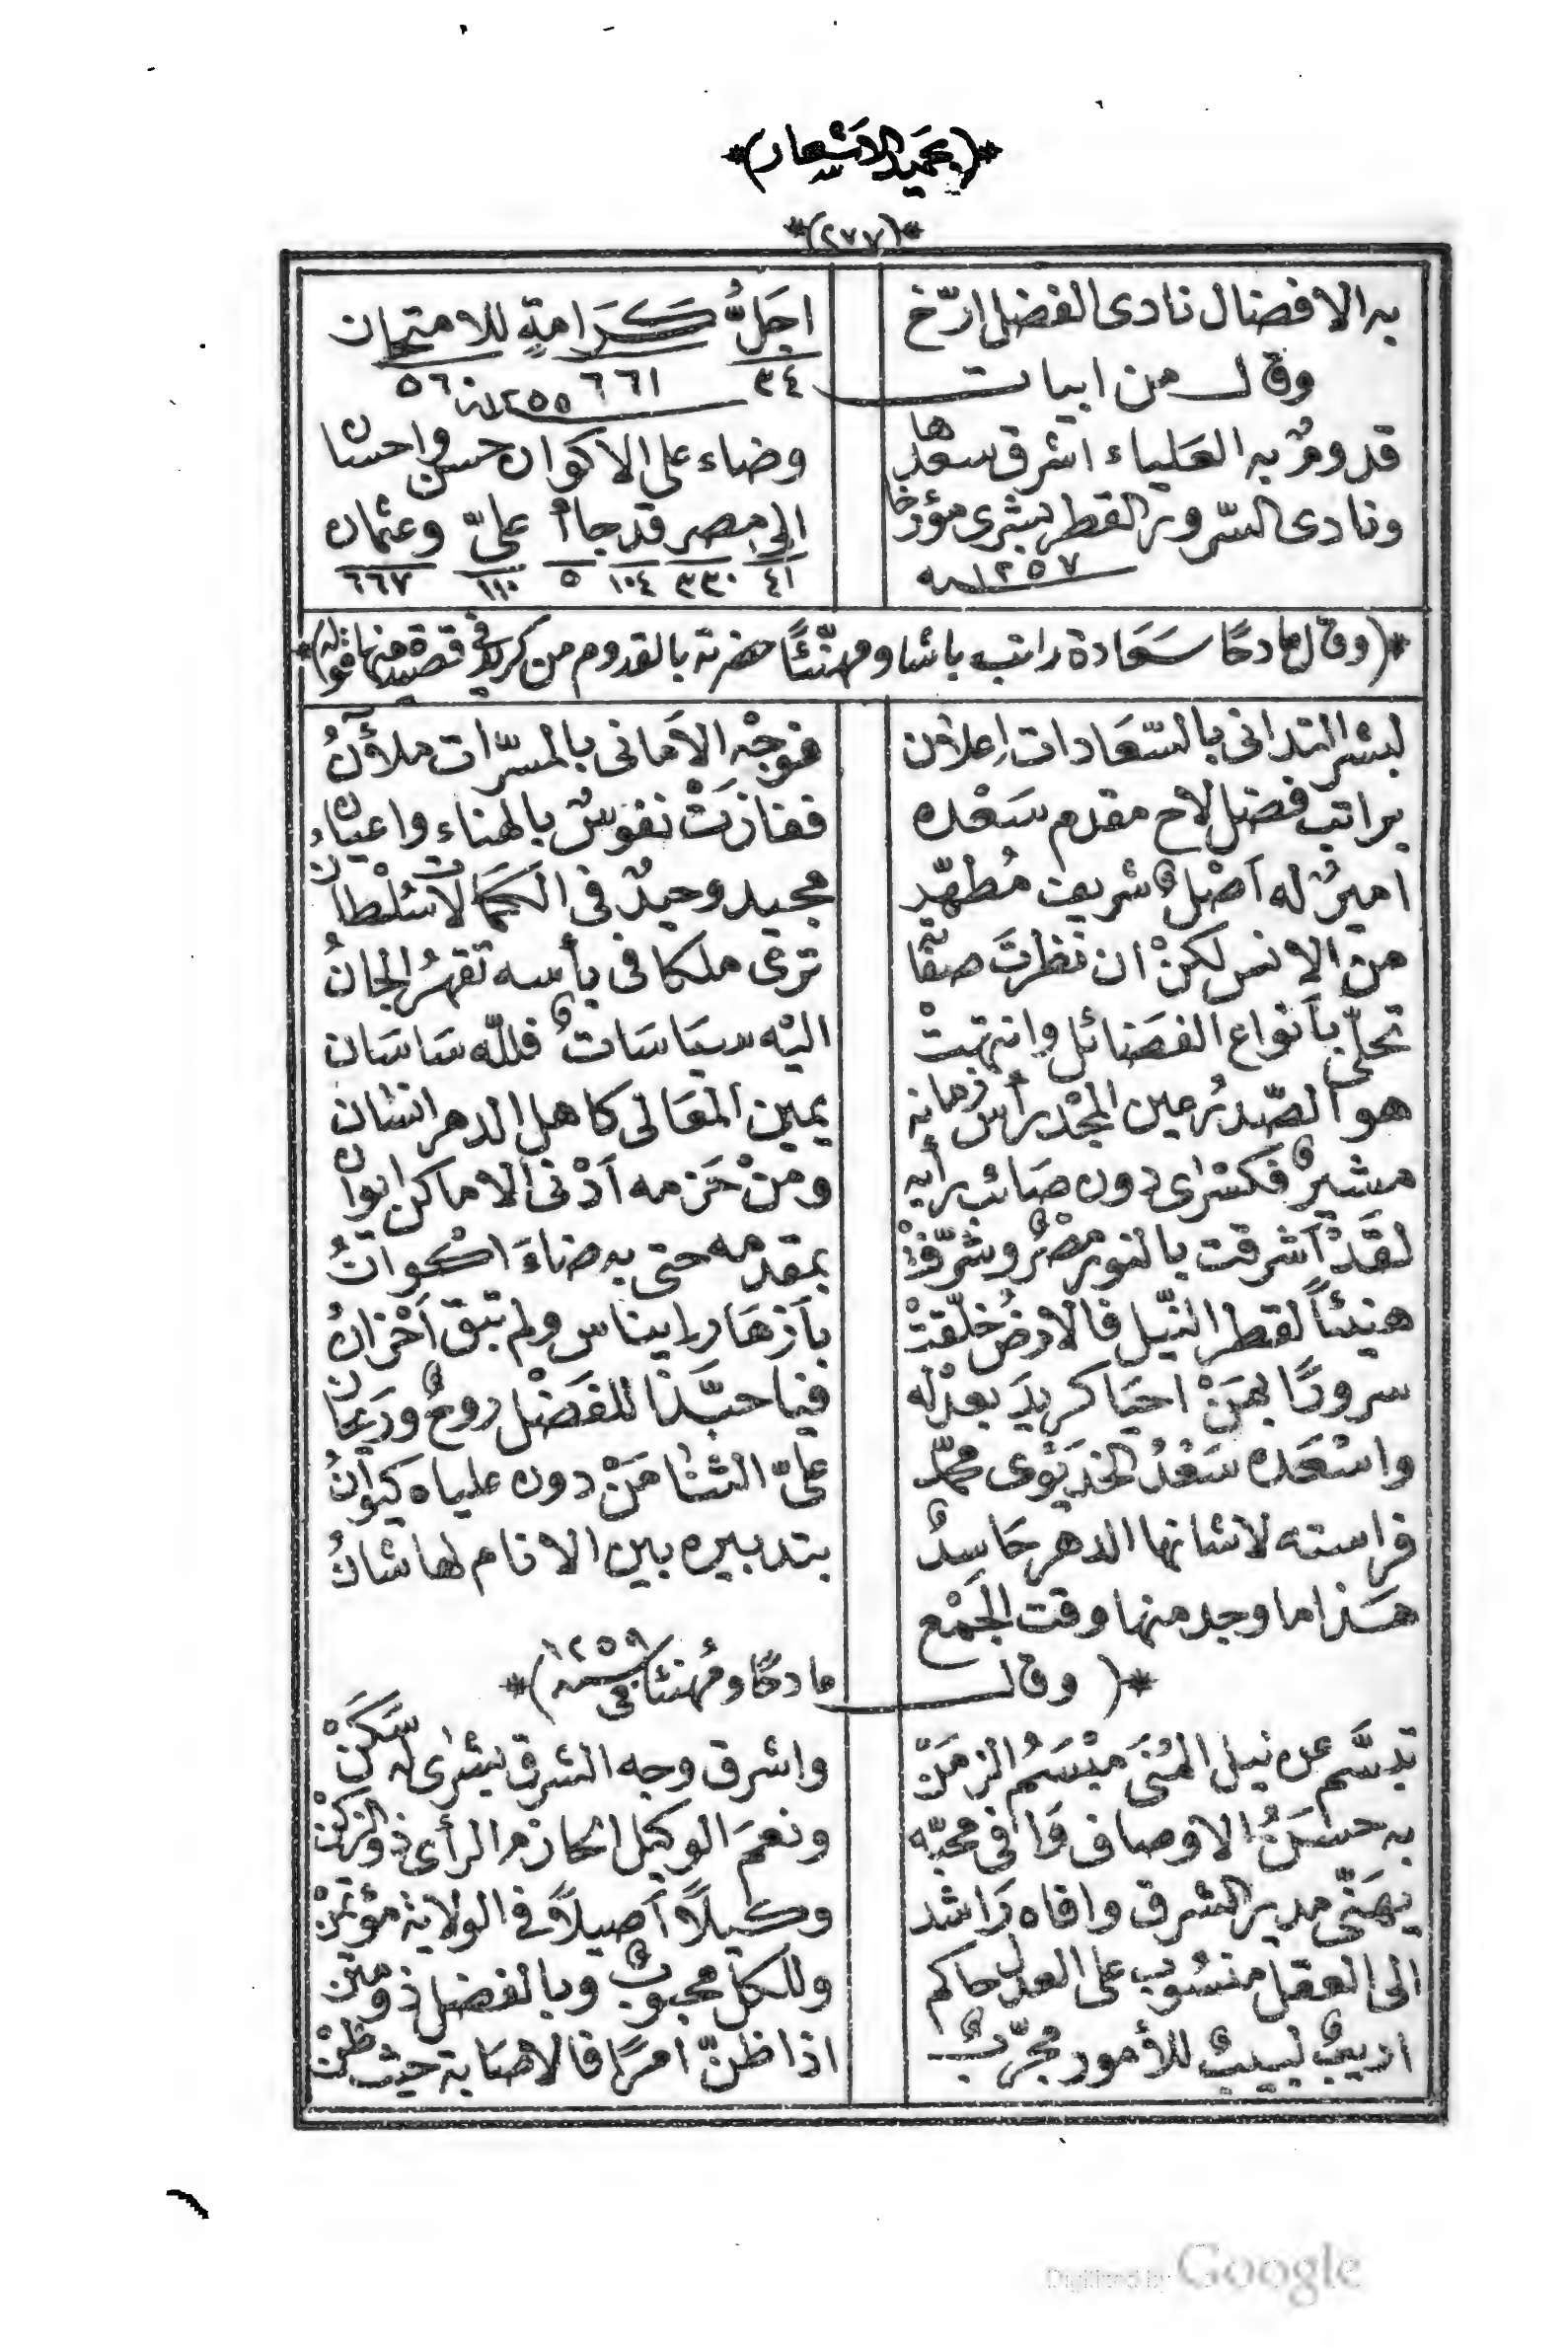 *(بحميد الاشعار)*
*(٢٧٧)*
به الافضال نادى الفضل ارّخ اجلُّ كَرَامةٍ للامتحان
٣٤ ٦٦١ ٥٦٠
وقال من ابيات سنة ١٢٥٥
قدومٌ به العلياء اشرق سعدها وضاء على الاكوان حسن واحسان
ونادى السّرور القطر بشرى مؤرخا الى مصر قد جاأ علىّ وعثمان
سنة ١٢٥٧ ٤١ ٣٣٠ ١٠٤ ٥ ١١٠ ٦٦٧
*(وقال مادحًا سَعَادة راتب باشا ومهنّئًا حضرته بالقدوم من كريد فى قصيدة منها قوله)*
لبشر التدانى بالسّعَادات اِعلان فوجْه الاَمانى بالمسرّات ملأنُ
براتب فضل لاح مقدم سَعْده ففازَتْ نفوسٌ بالهناء واعيان
اميرٌ له اَصْلٌ شريف مُطهّر مجيد وحيدٌ فى الكمالات سُلْطان
من الانس لكنْ ان نظرتَ صفاته ترى ملكا فى بأسه تقهرُ الجانُ
تحلّى بأنواع الفضَائل وانتهتْ اليْه سيَاسَاتٌ فللّه سَاسَان
هو الصّدرُ عين المجْد رأس زمانه يمين المعَالى كاهل الدهر انسان
مشيرٌ فكسْرى دون صَائب رأيه ومنْ حَزمه اَدْنى الاماكن ايوان
لقَدْ اَشرقت بالنور مصْرٌ وشرّفتْ بمقدمه حتى به ضاءَ اكوانُ
هنيئاً لقطر النّيل فالارضُ خلّقتْ بأزهَار ايناس ولم تبق اَحْزانُ
سرورًا بمَنْ احيَا كريدَ بعدْله فيا حبَّذا للفَضْل روحٌ وريحان
واسْعَده سَعْدُ الخديَوى محمّد علىّ الثنا مَنْ دون علياه كيوانُ
فراسته لاشانها الدهر حَاسِدٌ بتدبيره بين الانام لها شانُ
هَذا ما وجد منها وقت الجَمْع
*(وقال مادحًا ومُهنئا فى سنة ١٢٥٩)*
تبسَّم عن نيل المُنَى مبْسَمُ الزمَنْ واشرق وجه الشرق بشرى له سَكَنْ
به حسَنُ الاوصاف وَافى محبّه ونعمَ الوكيل الحازم الرأى ذو الزكنْ
يهنّى مدير الشرق وافاه رَاشد وكيلاً اَصيلاً فى الولاية مؤتمنْ
الى العقل منسُوب على العدل حاكم وللكلّ محبوبٌ وبالفضل ذو منن
اديبٌ لبيبٌ للأمور مجرّبٌ اذا ظنّ امرًا فالاصَابة حيث ظنْ
Digitized by Google